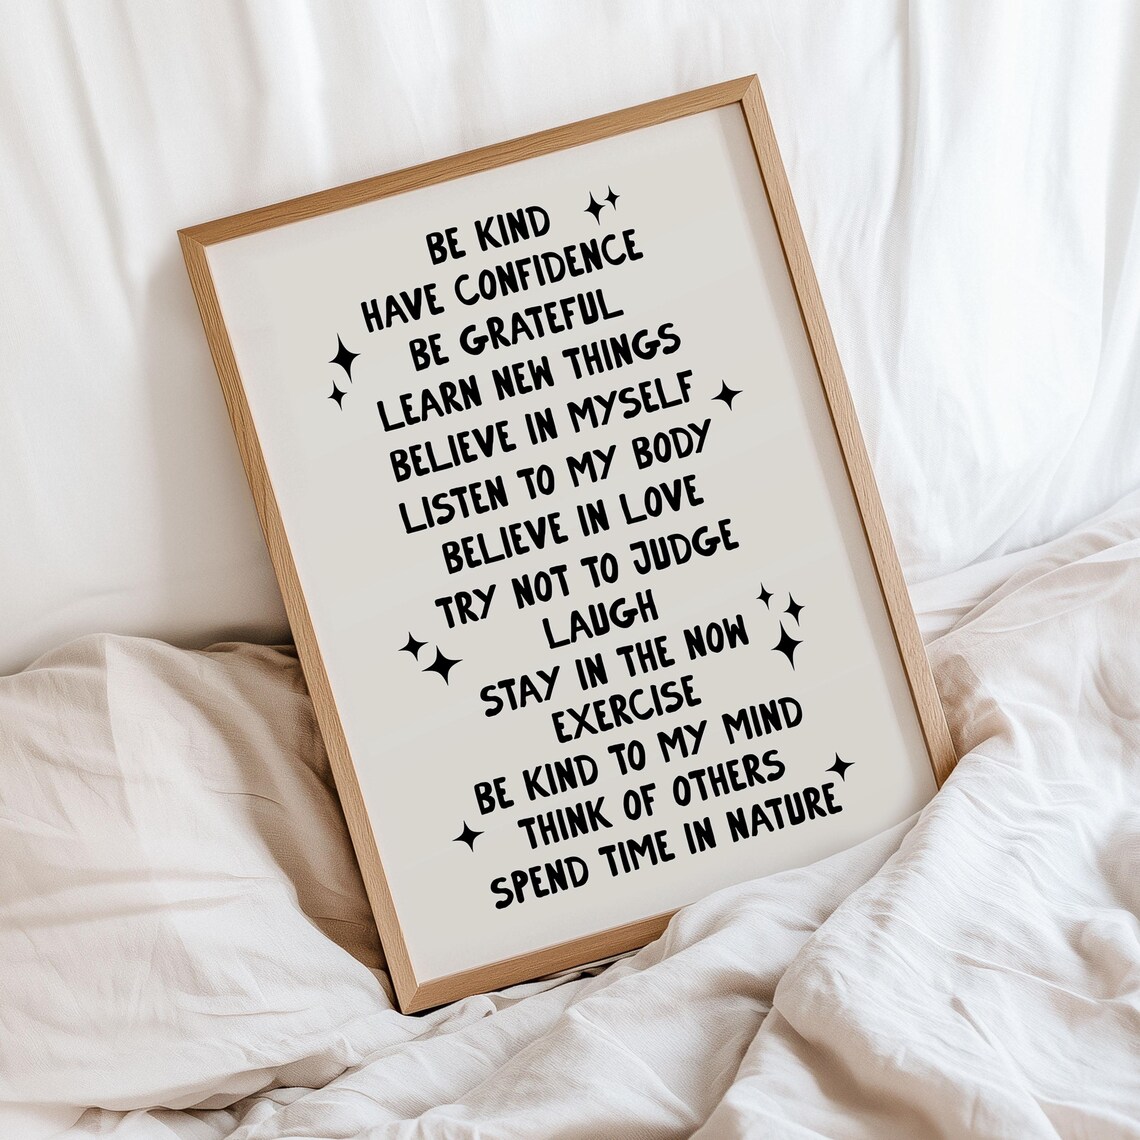 BE KIND
HAVE CONFIDENCE
BE GRATEFUL
LEARN NEW THINGS
BELIEVE IN MYSELF
LISTEN TO MY BODY
BELIEVE IN LOVE
TRY NOT TO JUDGE
LAUGH
STAY IN THE NOW
EXERCISE
BE KIND TO MY MIND
THINK OF OTHERS
SPEND TIME IN NATURE